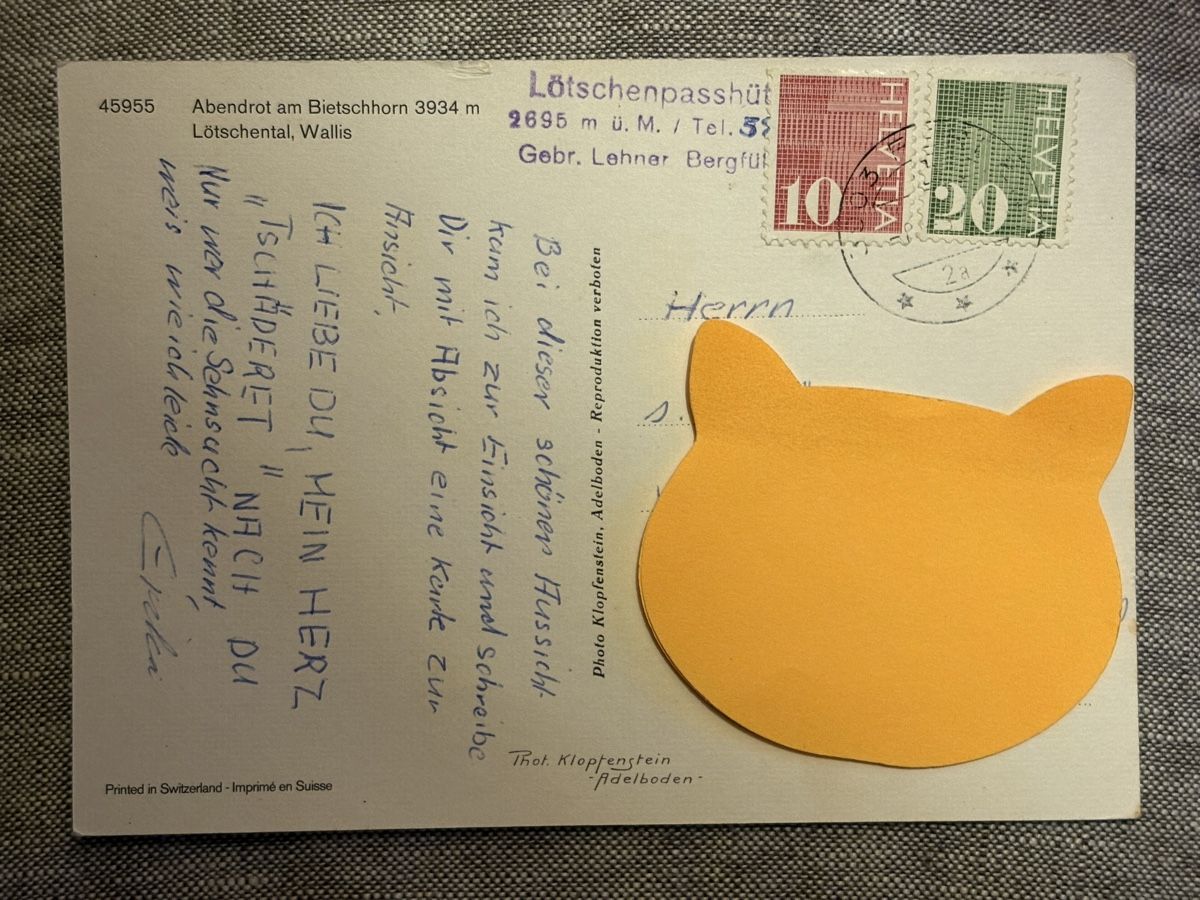 45955 Abendrot am Bietschhorn 3934 m
Lötschental, Wallis
Lötschenpasshüt
2695 m ü. M. / Tel. 5
Gebr. Lehner Bergfü
HELVETIA
10
HELVETIA
20
2a
Bei dieser schönen Aussicht
kam ich zur Einsicht und schreibe
Dir mit Absicht eine Karte zur
Ansicht.
ICH LIEBE DU, MEIN HERZ
"TSCHÄDERET" NACH DU
Nur wer die Sehnsucht kennt,
weis wie ich leide
Erika
Photo Klopfenstein, Adelboden - Reproduktion verboten
Herrn
Phot. Klopfenstein
-Adelboden-
Printed in Switzerland - Imprimé en Suisse